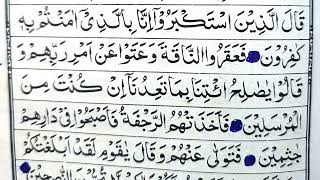 قَالَ الَّذِيْنَ اسْتَكْبَرُوْۤا اِنَّا بِالَّذِيْۤ اٰمَنْتُمْ بِهٖ
كٰفِرُوْنَ فَعَقَرُوا النَّاقَةَ وَعَتَوْا عَنْ اَمْرِ رَبِّهِمْ وَ
قَالُوْا يٰصٰلِحُ ائْتِنَا بِمَا تَعِدُنَاۤ اِنْ كُنْتَ مِنَ
الْمُرْسَلِيْنَ فَاَخَذَتْهُمُ الرَّجْفَةُ فَاَصْبَحُوْا فِيْ دَارِهِمْ
جٰثِمِيْنَ فَتَوَلّٰى عَنْهُمْ وَقَالَ يٰقَوْمِ لَقَدْ اَبْلَغْتُكُمْ